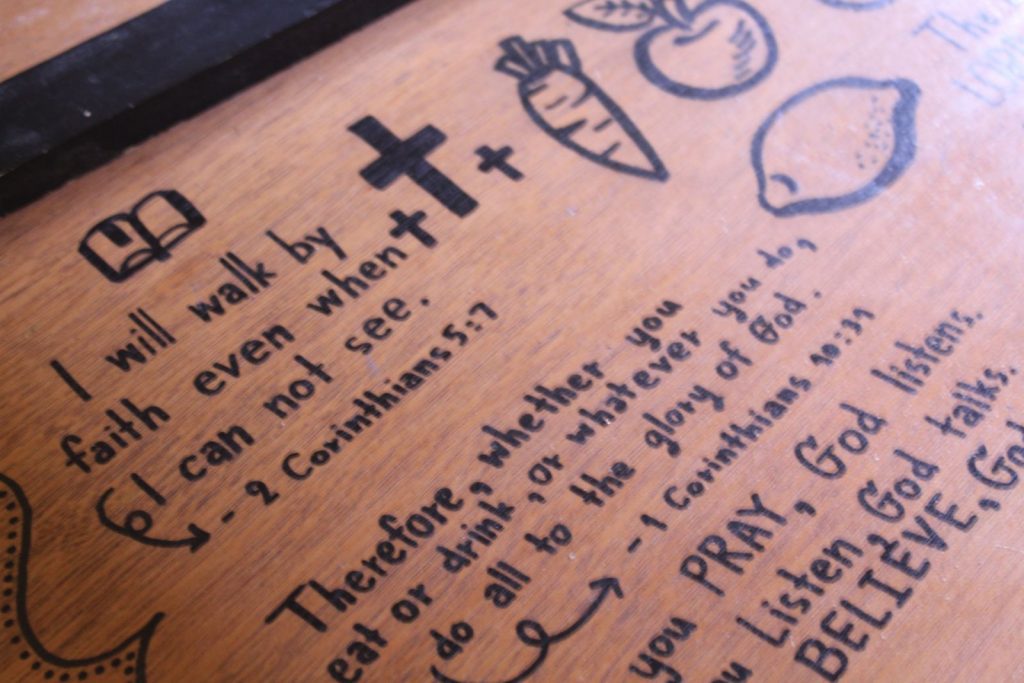 I will walk by
faith even when
I can not see.
- 2 Corinthians 5:7
Therefore, whether you
eat or drink, or whatever you do,
do all to the glory of God.
- 1 Corinthians 10:31
you PRAY, God listens.
Listen, God talks.
BELIEVE, God
The
LORD